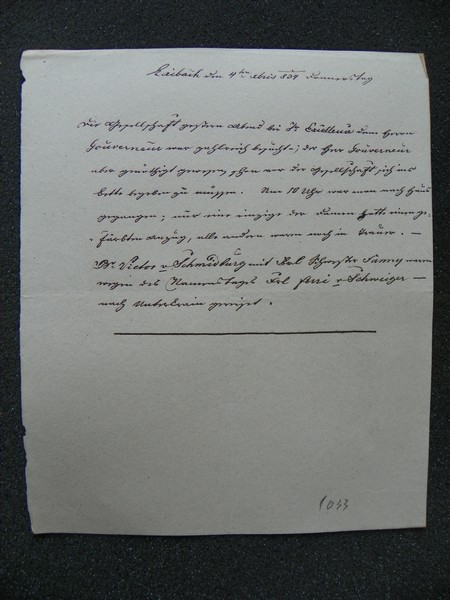 Laibach den 4ten 834 Donnerstag
Die Gesellschaft gestern Abend bei Sr Exellenz dem Herrn
Gouverneur war zahlreich besucht; der Herr Gouverneur
aber genöthigt gewesen, ohne der Gesellschaft sich ins
Bette begeben zu müssen. Um 10 Uhr war man nach Haus
gegangen; nur eine einzige der Damen hatte einen ge-
färbten Anzug, alle andern waren noch in Trauer. —
Br. Victor v Schmidburg mit Schwester Fanny waren
wegen des Namenstages Frl v Schweiger —
nach Unterkrain gereiset.
1033